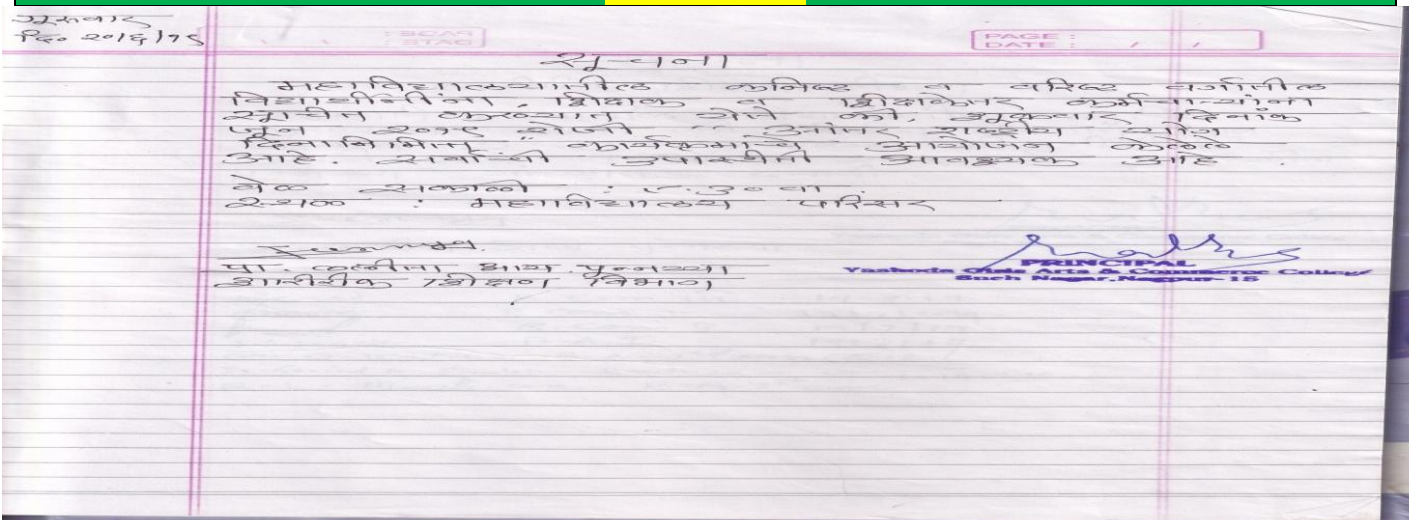 गुरुवार
दि. २०/६/१९
PAGE :
DATE : / /
सूचना
महाविद्यालयातील कनिष्ठ व वरिष्ठ वर्गातील
विद्यार्थीनींना, शिक्षक व शिक्षकेतर कर्मचाऱ्यांना
सूचीत करण्यात येते की, शुक्रवार दिनांक
जून २०१९ रोजी "आंतर राष्ट्रीय योग
दिनानिमित्त" कार्यक्रमाचे आयोजन केलेले
आहे. सर्वांची उपस्थिती आवश्यक आहे.
वेळ सकाळी : ८.३० वा.
स्थळ : महाविद्यालय परिसर
प्रा. ललीता आय. पुन्नय्या
शारीरीक शिक्षण विभाग
PRINCIPAL
Yashoda Girls Arts & Commerce College
Sneh Nagar, Nagpur-15